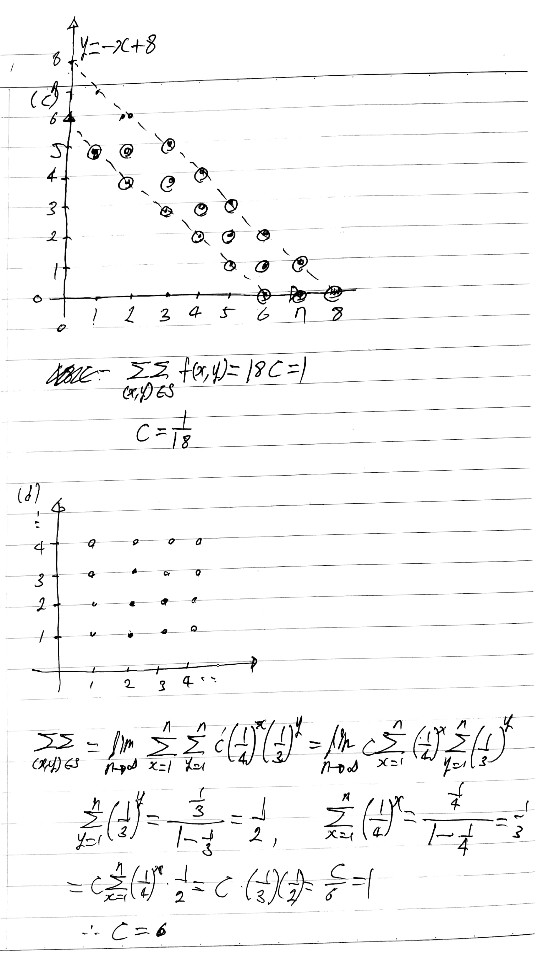 y=-x+8
8
7
(c)
6
5
4
3
2
1
0
0 1 2 3 4 5 6 7 8
∑∑ f(x,y)=18C=1
(x,y)∈S
C=1/18
(d)
⋮
4
3
2
1
1 2 3 4 ..
∑∑ (x,y)∈S = lim n→∞ ∑ x=1 n ∑ y=1 n c(1/4)^x(1/3)^y = lim n→∞ C∑ x=1 n (1/4)^x ∑ y=1 n (1/3)^y
∑ y=1 n (1/3)^y = (1/3)/(1-1/3) = 1/2, ∑ x=1 n (1/4)^x = (1/4)/(1-1/4) = 1/3
= C∑ x=1 n (1/4)^x · 1/2 = C·(1/3)(1/2) = C/6 = 1
∴ C=6